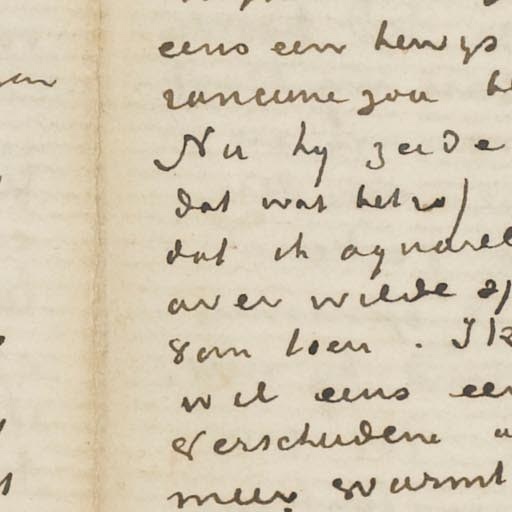 eens een bewys
rancune zou
Nu hy zeide
dat was het zo)
dat ik aquarel
over wilde
gom toen. Ik
wil eens een
verscheidene
meer warmt